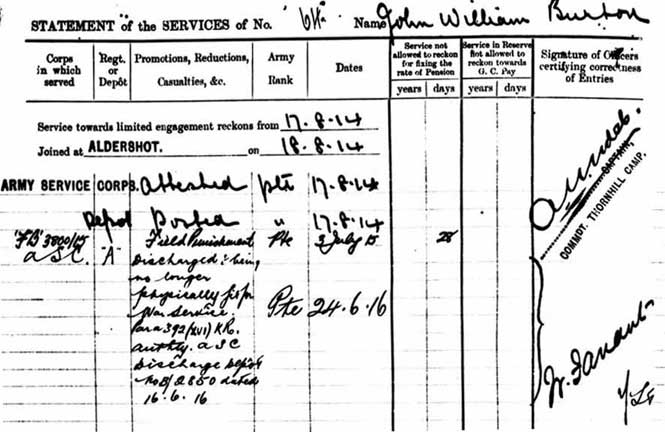 STATEMENT of the SERVICES of No. Name John William Burton
Corps in which served
Regt. or Depôt
Promotions, Reductions, Casualties, &c.
Army Rank
Dates
Service not allowed to reckon for fixing the rate of Pension
years days
Service in Reserve not allowed to reckon towards G. C. Pay
years days
Signature of Officers certifying correctness of Entries
Service towards limited engagement reckons from 17.8.14
Joined at ALDERSHOT. on 18.8.14
ARMY SERVICE CORPS. Attested Pte 17.8.14
Depot Posted " 17.8.14
3800/15 Field Punishment Pte 3 July 15 28
A.S.C. "A" Discharged being
no longer
physically fit for
War Service. Pte 24.6.16
Para 392 (XVI) K.R.
Authty. A S C
Discharge Depot
No B/2850 dated
16.6.16
CAPTAIN,
COMMDT. THORNHILL CAMP.